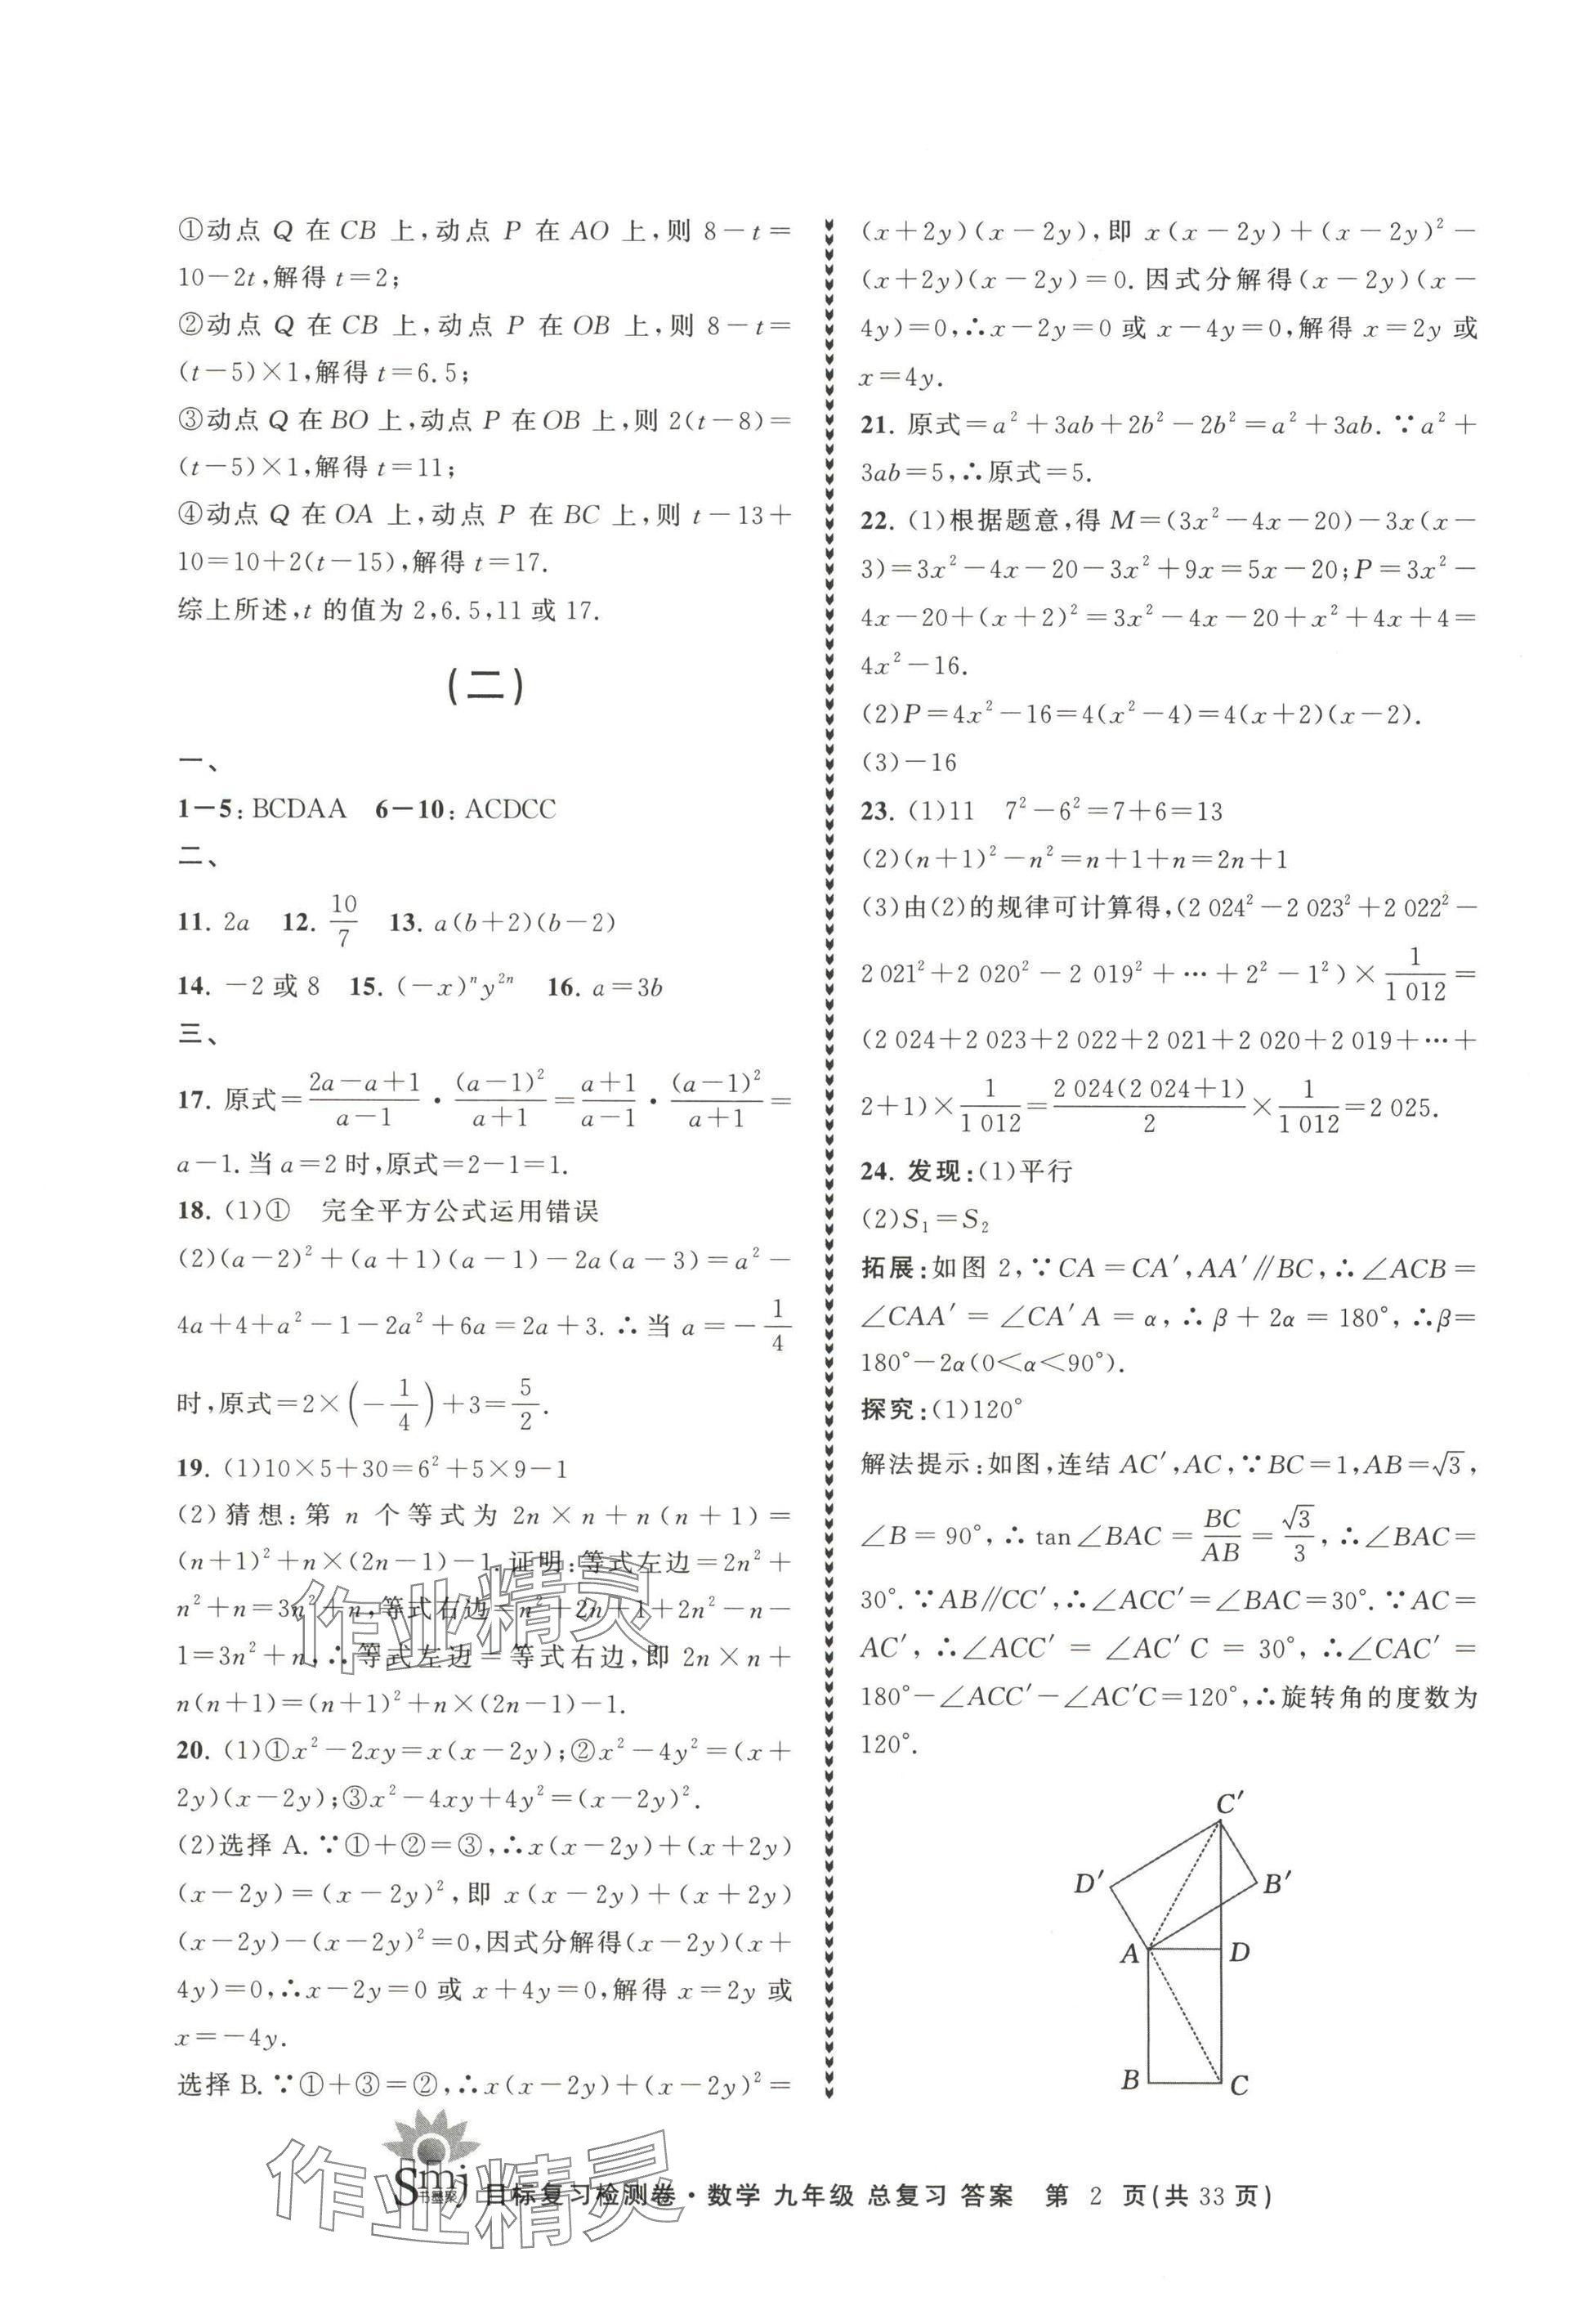 ①动点 Q 在 CB 上,动点 P 在 AO 上,则 8－t＝
10－2t,解得 t＝2;
②动点 Q 在 CB 上,动点 P 在 OB 上,则 8－t＝
(t－5)×1,解得 t＝6.5;
③动点 Q 在 BO 上,动点 P 在 OB 上,则 2(t－8)＝
(t－5)×1,解得 t＝11;
④动点 Q 在 OA 上,动点 P 在 BC 上,则 t－13＋
10＝10＋2(t－15),解得 t＝17.
综上所述,t 的值为 2,6.5,11 或 17.
(二)
一、
1－5: BCDAA 6－10: ACDCC
二、
11. 2a 12. 10/7 13. a(b＋2)(b－2)
14. －2 或 8 15. (－x)ⁿy²ⁿ 16. a＝3b
三、
17. 原式＝(2a－a＋1)/(a－1)·(a－1)²/(a＋1)＝(a＋1)/(a－1)·(a－1)²/(a＋1)＝
a－1.当 a＝2 时,原式＝2－1＝1.
18. (1)① 完全平方公式运用错误
(2)(a－2)²＋(a＋1)(a－1)－2a(a－3)＝a²－
4a＋4＋a²－1－2a²＋6a＝2a＋3.∴当 a＝－1/4
时,原式＝2×(－1/4)＋3＝5/2.
19. (1)10×5＋30＝6²＋5×9－1
(2)猜想:第 n 个等式为 2n×n＋n(n＋1)＝
(n＋1)²＋n×(2n－1)－1.证明:等式左边＝2n²＋
n²＋n＝3n²＋n,等式右边＝n²＋2n＋1＋2n²－n－
1＝3n²＋n,∴等式左边＝等式右边,即 2n×n＋
n(n＋1)＝(n＋1)²＋n×(2n－1)－1.
20. (1)①x²－2xy＝x(x－2y);②x²－4y²＝(x＋
2y)(x－2y);③x²－4xy＋4y²＝(x－2y)².
(2)选择 A.∵①＋②＝③,∴x(x－2y)＋(x＋2y)
(x－2y)＝(x－2y)²,即 x(x－2y)＋(x＋2y)
(x－2y)－(x－2y)²＝0,因式分解得(x－2y)(x＋
4y)＝0,∴x－2y＝0 或 x＋4y＝0,解得 x＝2y 或
x＝－4y.
选择 B.∵①＋③＝②,∴x(x－2y)＋(x－2y)²＝
(x＋2y)(x－2y),即 x(x－2y)＋(x－2y)²－
(x＋2y)(x－2y)＝0.因式分解得(x－2y)(x－
4y)＝0,∴x－2y＝0 或 x－4y＝0,解得 x＝2y 或
x＝4y.
21. 原式＝a²＋3ab＋2b²－2b²＝a²＋3ab.∵a²＋
3ab＝5,∴原式＝5.
22. (1)根据题意,得 M＝(3x²－4x－20)－3x(x－
3)＝3x²－4x－20－3x²＋9x＝5x－20;P＝3x²－
4x－20＋(x＋2)²＝3x²－4x－20＋x²＋4x＋4＝
4x²－16.
(2)P＝4x²－16＝4(x²－4)＝4(x＋2)(x－2).
(3)－16
23. (1)11 7²－6²＝7＋6＝13
(2)(n＋1)²－n²＝n＋1＋n＝2n＋1
(3)由(2)的规律可计算得,(2 024²－2 023²＋2 022²－
2 021²＋2 020²－2 019²＋…＋2²－1²)×1/1 012＝
(2 024＋2 023＋2 022＋2 021＋2 020＋2 019＋…＋
2＋1)×1/1 012＝2 024(2 024＋1)/2×1/1 012＝2 025.
24. 发现:(1)平行
(2)S₁＝S₂
拓展:如图 2,∵CA＝CA′,AA′∥BC,∴∠ACB＝
∠CAA′＝∠CA′A＝α,∴β＋2α＝180°,∴β＝
180°－2α(0＜α＜90°).
探究:(1)120°
解法提示:如图,连结 AC′,AC,∵BC＝1,AB＝√3,
∠B＝90°,∴tan∠BAC＝BC/AB＝√3/3,∴∠BAC＝
30°.∵AB∥CC′,∴∠ACC′＝∠BAC＝30°.∵AC＝
AC′,∴∠ACC′＝∠AC′C＝30°,∴∠CAC′＝
180°－∠ACC′－∠AC′C＝120°,∴旋转角的度数为
120°.
C′
D′
B′
A
D
B
C
作业精灵
作业精灵
Smj
书墨聚
目标复习检测卷·数学 九年级 总复习 答案 第 2 页(共 33 页)